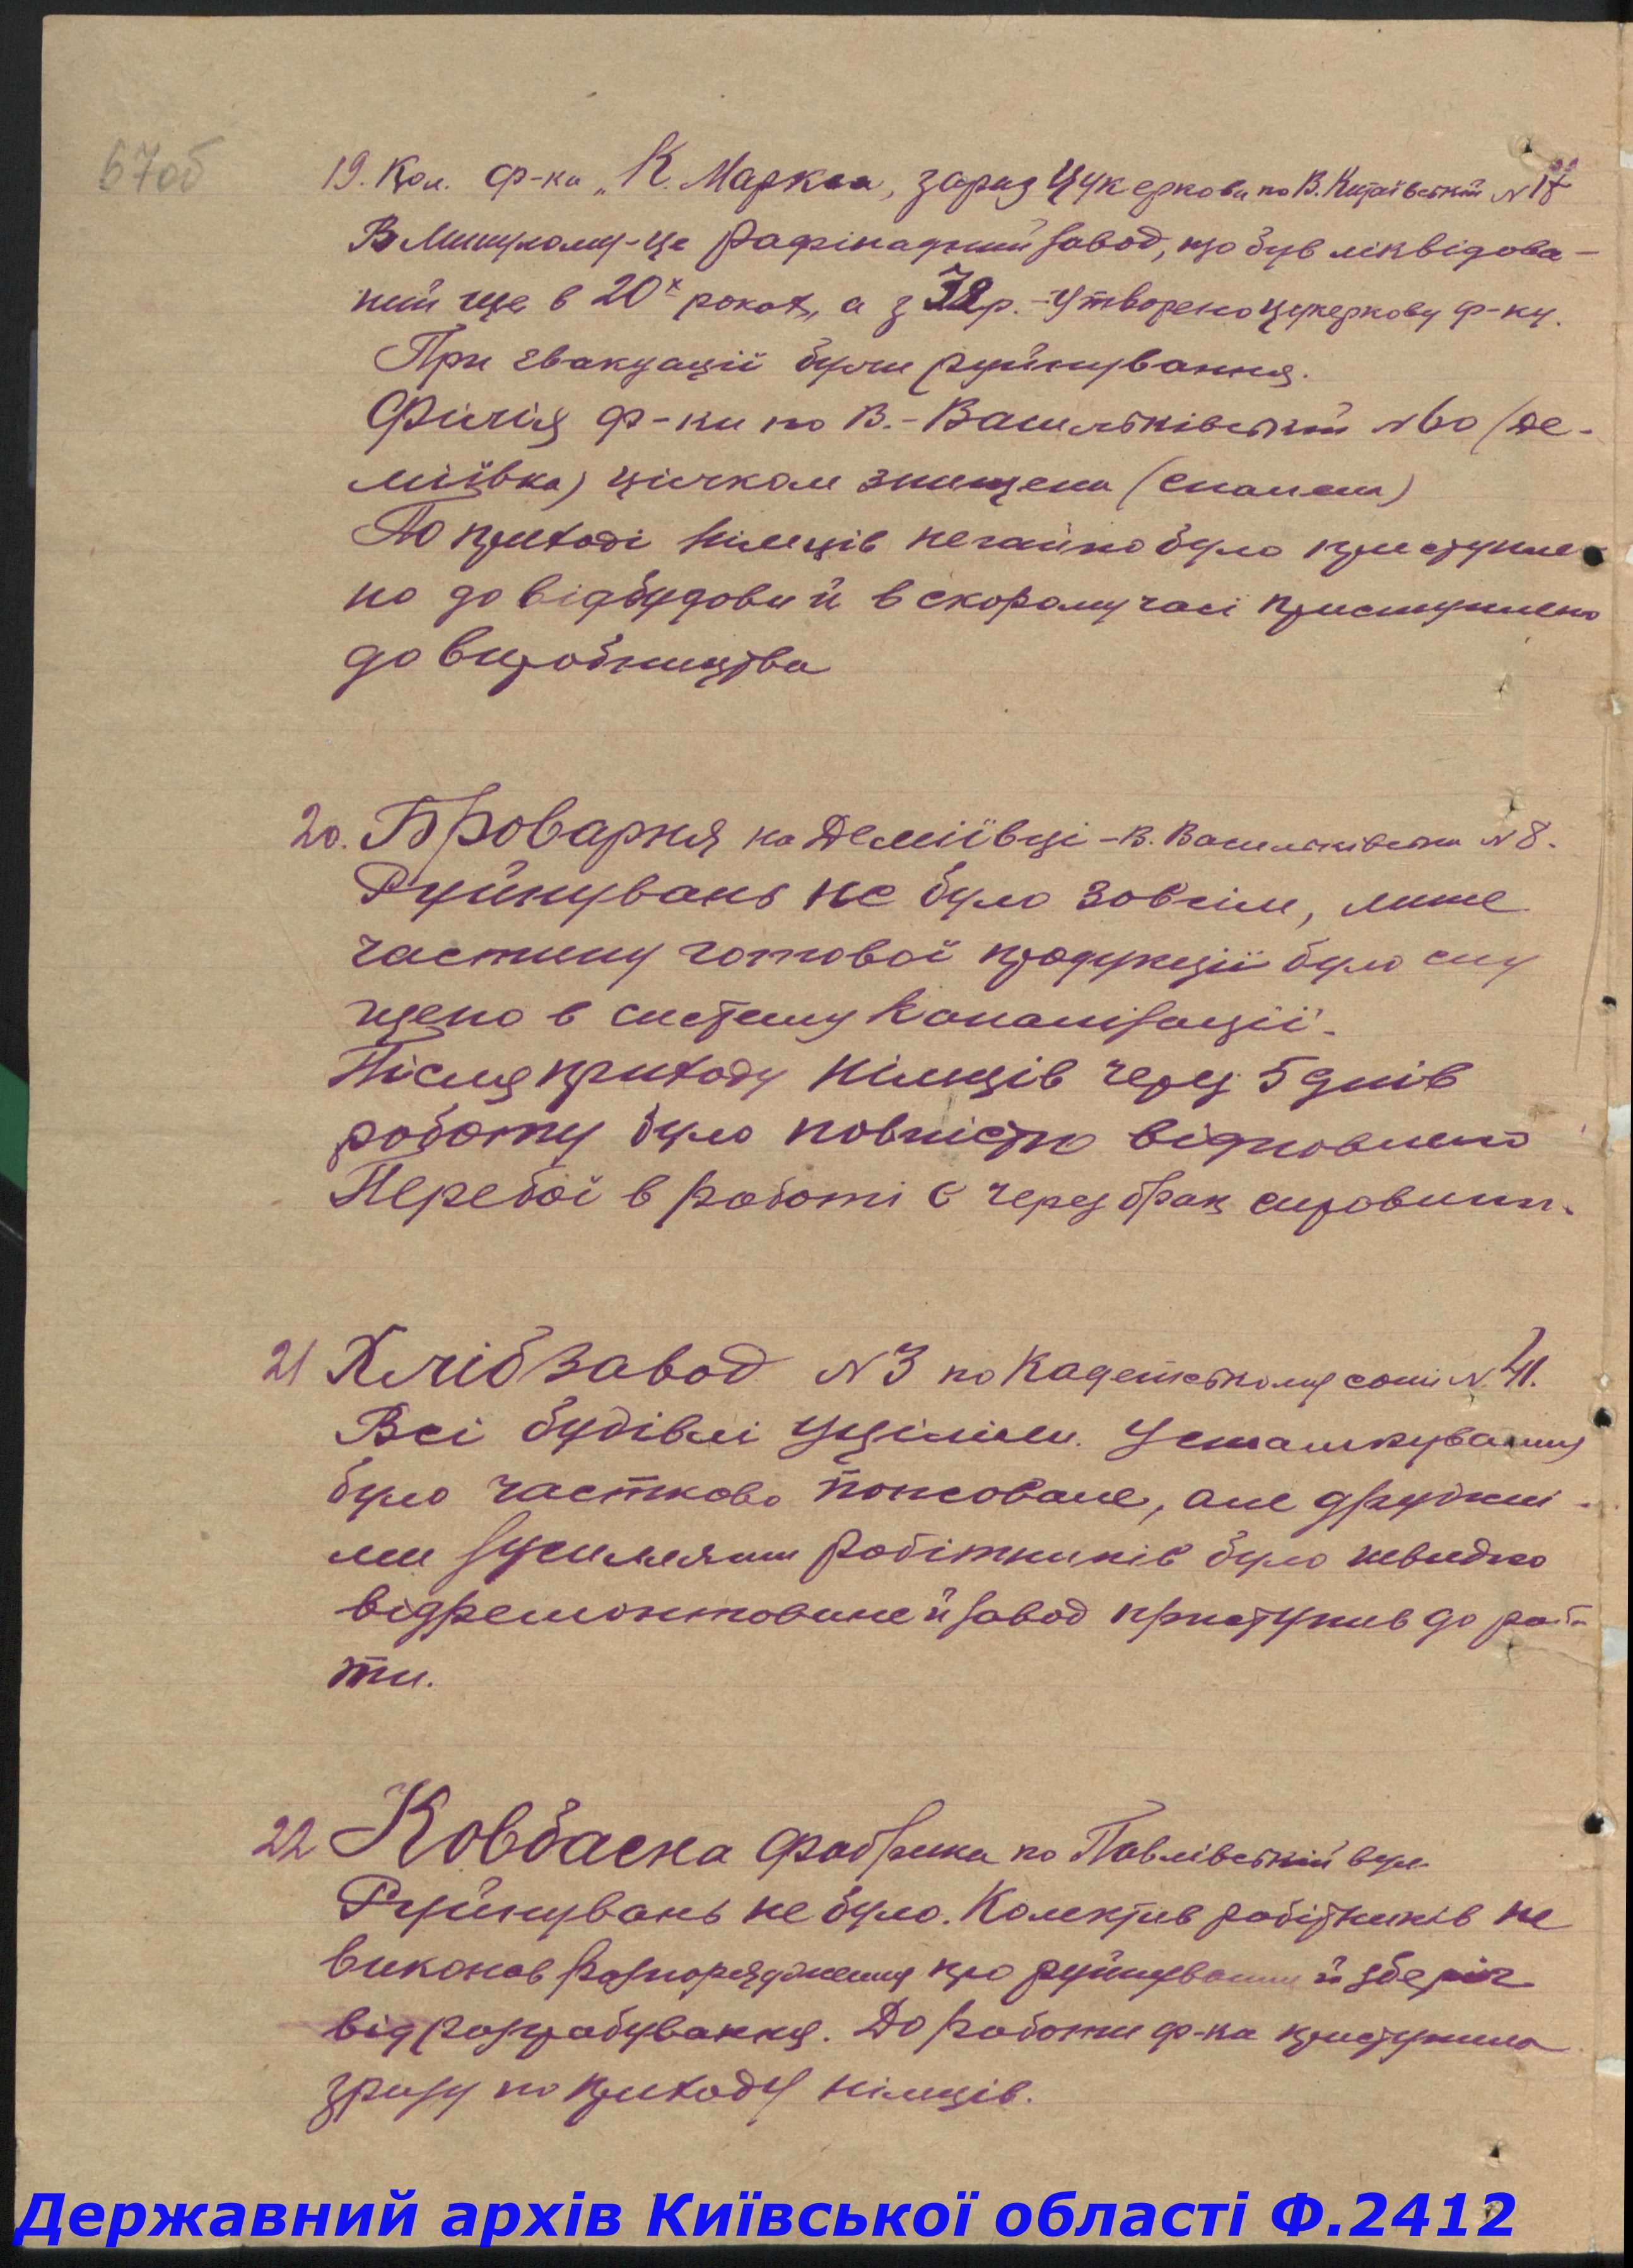 67об
19. Кол. ф-ка „К. Маркса, зараз Цукеркова по В. Китаївській №
В Минулому-це рафінадний завод, що був ліквідова-
ний ще в 20х роках, а з р.-утворено цукеркову ф-ку.
При евакуації були руйнування.
Філія ф-ки по В.-Васильківській №60 (Де-
міївка) цілком знищена (спалена)
По приході німців негайно було приступле
но до відбудови й в скорому часі приступлено
до виробництва
20. Броварня на Деміївці-В. Васильківська №8.
Руйнувань не було зовсім, лише
частину готової продукції було спу
щено в систему каналізації.
Після приходу німців через 5 днів
роботу було повністю відновлено
Перебої в роботі є через брак сировини.
21 Хлібзавод №3 по Кадетському шосе №41.
Всі будівлі уціліли. Устаткування
було частково попсоване, але дружні-
ми зусиллями робітників було швидко
відремонтоване й завод приступив до робо-
ти.
22 Ковбасна фабрика по Павлівській вул.
Руйнувань не було. Колектив робітників не
виконав розпорядження про руйнування й зберіг
від розграбування. До роботи ф-ка приступила
зразу по приходу німців.
Державний архів Київської області Ф.2412